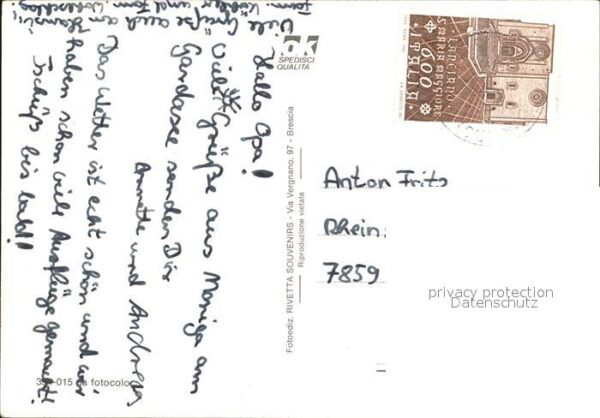 Hallo Opa!
Viele Grüße aus Maniga am
Gardasee senden Dir
Annette und Andreas
Das Wetter ist echt schön und wir
haben schon viele Ausflüge gemacht!
Tschüß bis bald!
Viele Grüße auch an
Fam. und Fam.
ok
SPEDISCI
QUALITA
Fotoediz. RIVETTA SOUVENIRS - Via Vergnano, 97 - Brescia
Riproduzione vietata
015
fotocolor
ITALIA
600
LANCIANO
S. MARIA MAGGIORE
Anton Fritz
Rhein
7859
privacy protection
Datenschutz